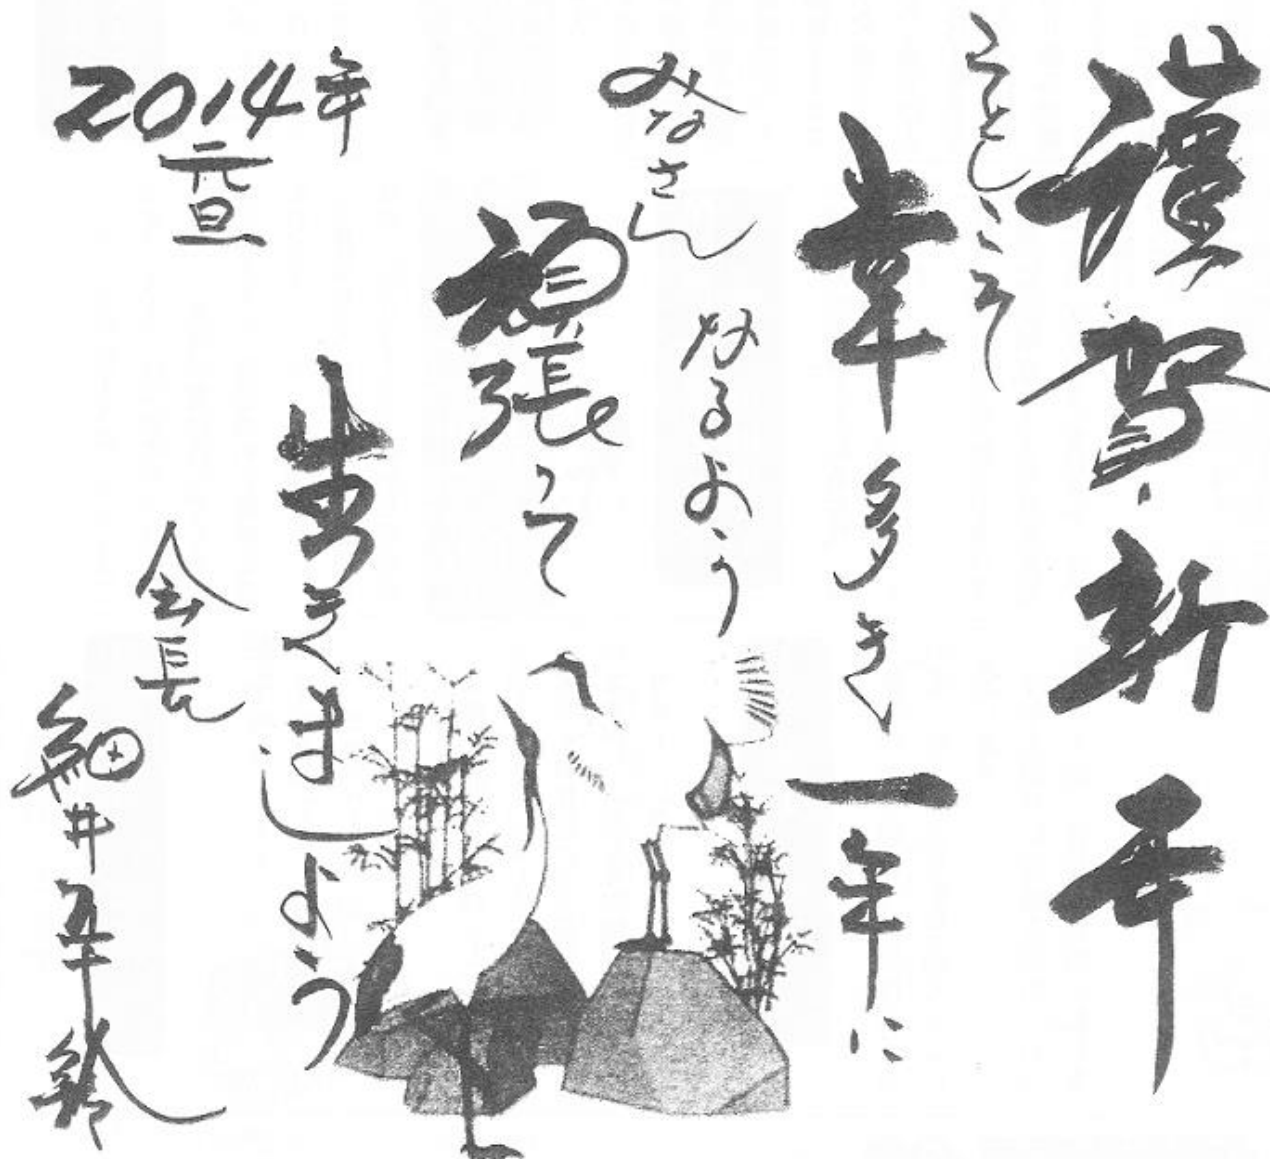 謹賀新年
ことしこそ
幸多き一年に
なるよう
みなさん
頑張って
生きましょう
2014年
元旦
会長
細井五十鈴